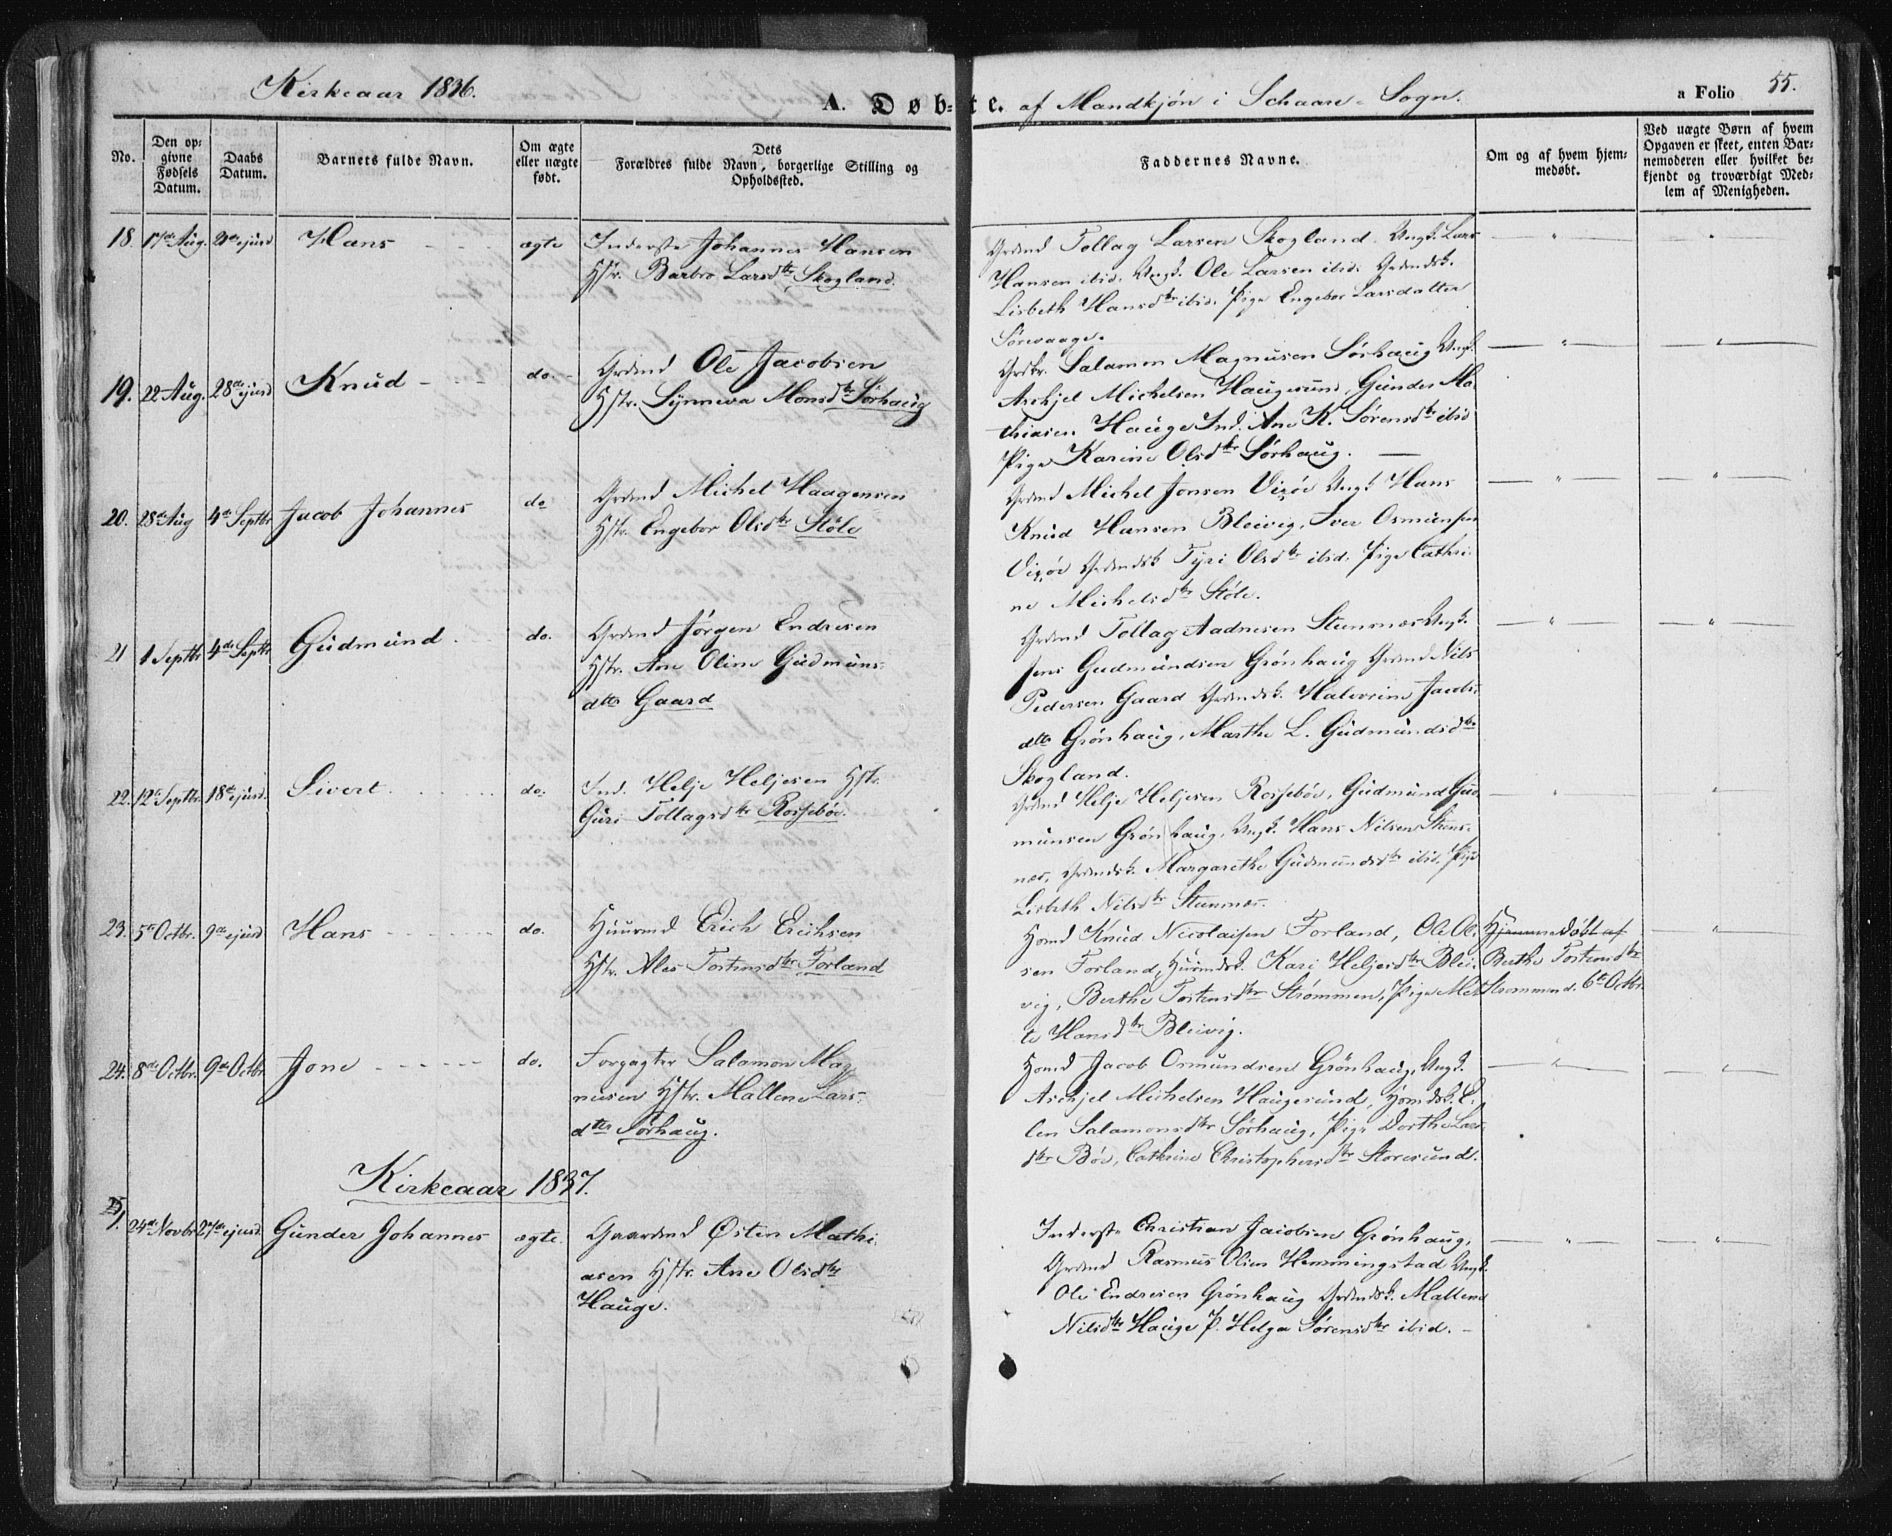 Kirkeaar 1836.
A. Døbte. af Mandkjøn i Schaare-Sogn.
a Folio 55.
No.
Den opgivne Fødsels Datum.
Daabs Datum.
Barnets fulde Navn.
Om ægte eller uægte født.
Dets Forældres fulde Navn, borgerlige Stilling og Opholdssted.
Faddernes Navne.
Om og af hvem hjemmedøbt.
Ved uægte Børn af hvem Opgaven er skeet, enten Barnemoderen eller hvilket bekjendt og troværdigt Medlem af Menigheden.
18. 17de Aug. 21de ejusd Hans - - - - ægte
Inderste Johannes Hansen
Hstr. Barbro Larsdtr Skogland.
Grdmd Tollag Larsen Skogland. Ungk. Lars
Hansen ibid. Ungk. Ole Larsen ibid. Grdmdsk.
Lisbeth Hansdtr ibid. Pige Engebor Larsdatter
Sørevaage.
19. 22 Aug. 28de ejusd Knud - - - - do. -
Grdmd Ole Jacobsen
Hstr. Synneva Monsdtr Sørhaug
Salamon Magnusen Sørhaug Ungk.
Aschjel Michelsen Haugesund, Gunder Ma-
thiasen Hauge Ind. Ane K. Sørensdtr ibid
Pige Karine Olsdtr Sørhaug. —
20. 28de Aug 4de Septbr Jacob Johannes do
Grdmd Michel Haagensen
Hstr. Engebor Olsdtr Støle
Grdmd Michel Jonsen Vixøe Ungk Hans
Knud Hansen Bleivig, Iver Osmunsen
Vixøe Grdmdsk Tyri Olsdtr ibid. Pige Cathri-
ne Michelsdtr Støle.
21 1 Septbr 4de Septbr Gudmund. do.
Grdmd Jørgen Endresen
Hstr. Ane Oline Gudmuns-
dtr Gaard
Grdmd Tollag Aadnesen Stensnæs Ungk.
Jens Gudmundsen Grønhaug Grdmd Nils
Pedersen Gaard Grdmdsk. Halvorine Jacobs-
dtr Grønhaug, Marthe L. Gudmundsdtr
Skogland.
22. 12te Septbr. 18de ejusd. Sivert. do.
Ind. Helje Heljesen Hstr.
Guri Tollagsdtr Rossebøe.
Grdmd Helje Heljesen Rossebøe, Gudmund Gud-
munsen Grønhaug, Ungk. Hans Nilsen Stens-
næs, Grdmdsk. Margarethe Gudmundsdtr ibid. Pige
Lisbeth Nilsdtr Stensnæs.
23. 5te Octbr. 9de ejusd Hans - - - - do.
Huusmd Erich Erichsen
Hstr. Ales Tostensdtr Forland
Hsmd Knud Nicolaisen Forland, Ole Ol-
sen Forland, Huusmdsk. Kari Heljesdtr Blei-
vig, Berthe Tostensdtr Strømmen, Pige Met-
te Hansdtr Bleivig.
Hjemmedøbt af
Berthe Tostensdtr
Strømmend. 6te Octbr.
24. 8de Octbr. 9de Octbr Jone - - - - do.
Forpagter Salamon Mag
nusen Hstr. Mallene Lars-
dtr Sørhaug.
Hsmd Jacob Osmundsen Grønhaug, Ungk.
Aschjel Michelsen Haugesund, Hsmdsk. E-
len Salamonsdtr Sørhaug, Pige Dorthe Lars-
dtr Bøe, Cathrine Christophersdtr Storesund.
Kirkeaar 1837.
1. 24de Novbr 27de ejusd. Gunder Johannes ægte.
Gaardmd Østen Mathi-
asen Hstr. Ane Olsdtr
Hauge.
Inderste Christian Jacobsen Grønhaug,
Grdmd Rasmus Olsen Hemmingstad Ungk.
Ole Endresen Grønhaug Grdmdsk. Mallene
Nilsdtr Hauge P. Helga Sørensdtr ibid. -